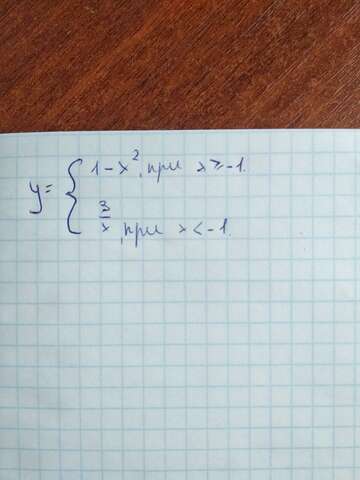 y = { 1 - x², при x ≥ -1.
3/x, при x < -1.